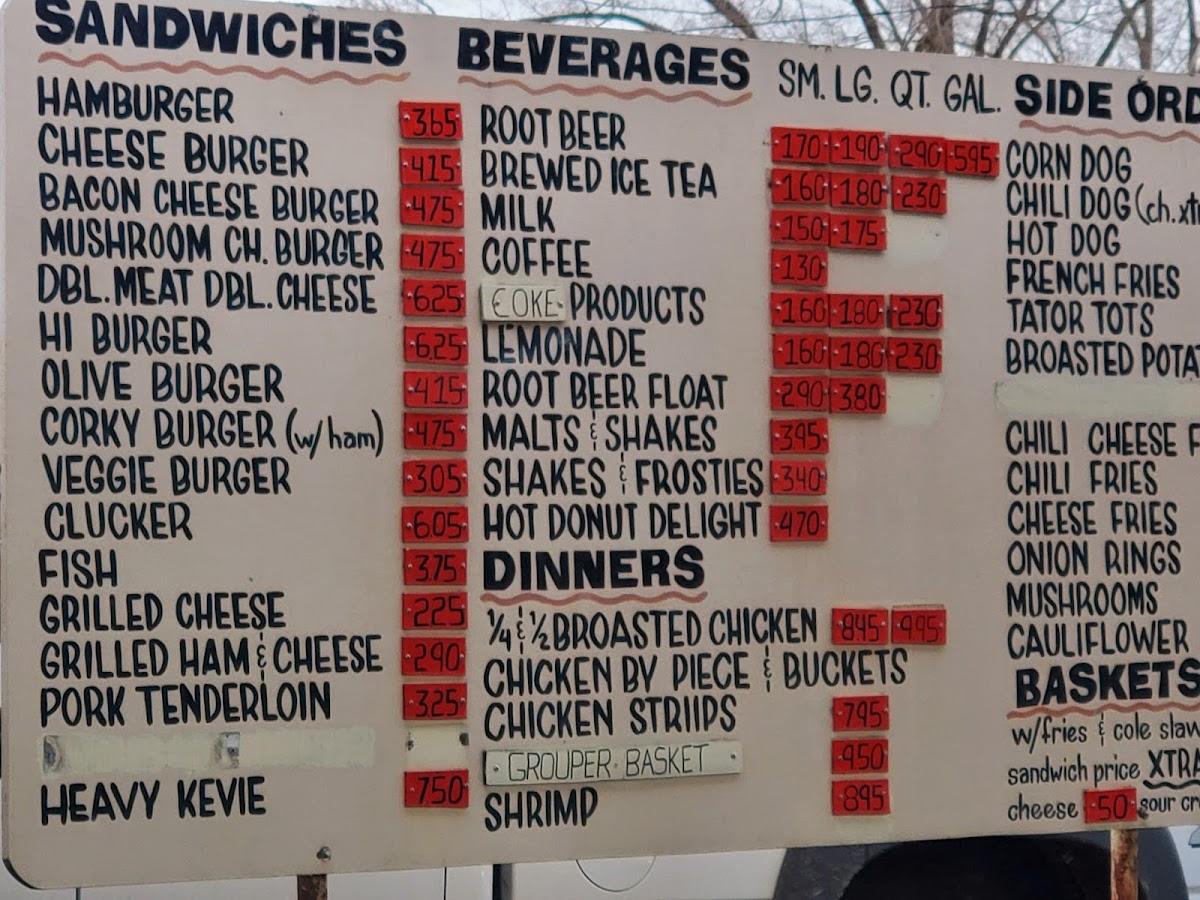 SANDWICHES
HAMBURGER 365
CHEESE BURGER 415
BACON CHEESE BURGER 475
MUSHROOM CH. BURGER 475
DBL. MEAT DBL. CHEESE 625
HI BURGER 6.25
OLIVE BURGER 415
CORKY BURGER (w/ham) 475
VEGGIE BURGER 305
CLUCKER 6.05
FISH 3.75
GRILLED CHEESE 225
GRILLED HAM & CHEESE 290
PORK TENDERLOIN 3.25
HEAVY KEVIE 7.50
BEVERAGES SM. LG. QT. GAL.
ROOT BEER 170 190 290 595
BREWED ICE TEA 160 180 230
MILK 150 175
COFFEE 130
COKE PRODUCTS 160 180 230
LEMONADE 160 180 230
ROOT BEER FLOAT 290 380
MALTS & SHAKES 395
SHAKES & FROSTIES 340
HOT DONUT DELIGHT 470
DINNERS
¼ & ½ BROASTED CHICKEN 845 995
CHICKEN BY PIECE & BUCKETS
CHICKEN STRIIPS 795
GROUPER BASKET 950
SHRIMP 895
SIDE ORD
CORN DOG
CHILI DOG (ch.xt
HOT DOG
FRENCH FRIES
TATOR TOTS
BROASTED POTA
CHILI CHEESE F
CHILI FRIES
CHEESE FRIES
ONION RINGS
MUSHROOMS
CAULIFLOWER
BASKETS
w/fries & cole slaw
sandwich price XTRA
cheese .50 sour cr